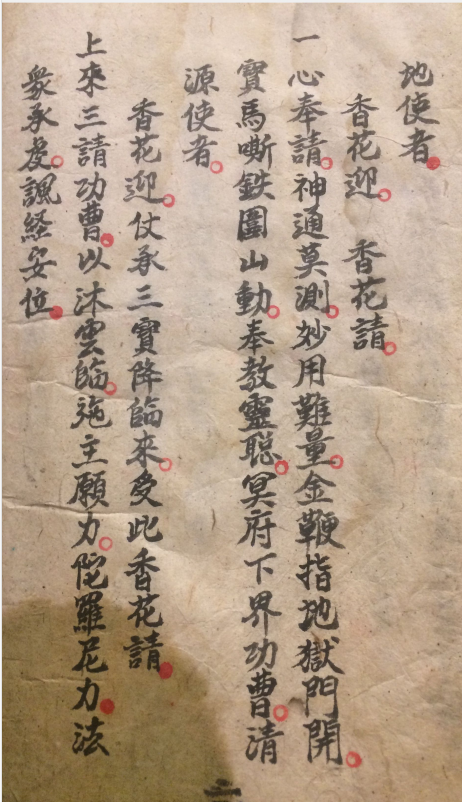 地使者
香花迎 香花請
一心奉請神通莫測妙用難量金鞭指地獄門開
寳馬嘶鉄圍山動奉教靈聡冥府下界功曹清
源使者
香花迎仗承三寳降臨來受此香花請
上來三請功曹以沐雲臨施主願力陀羅尼力法
衆承虔諷経安位
二